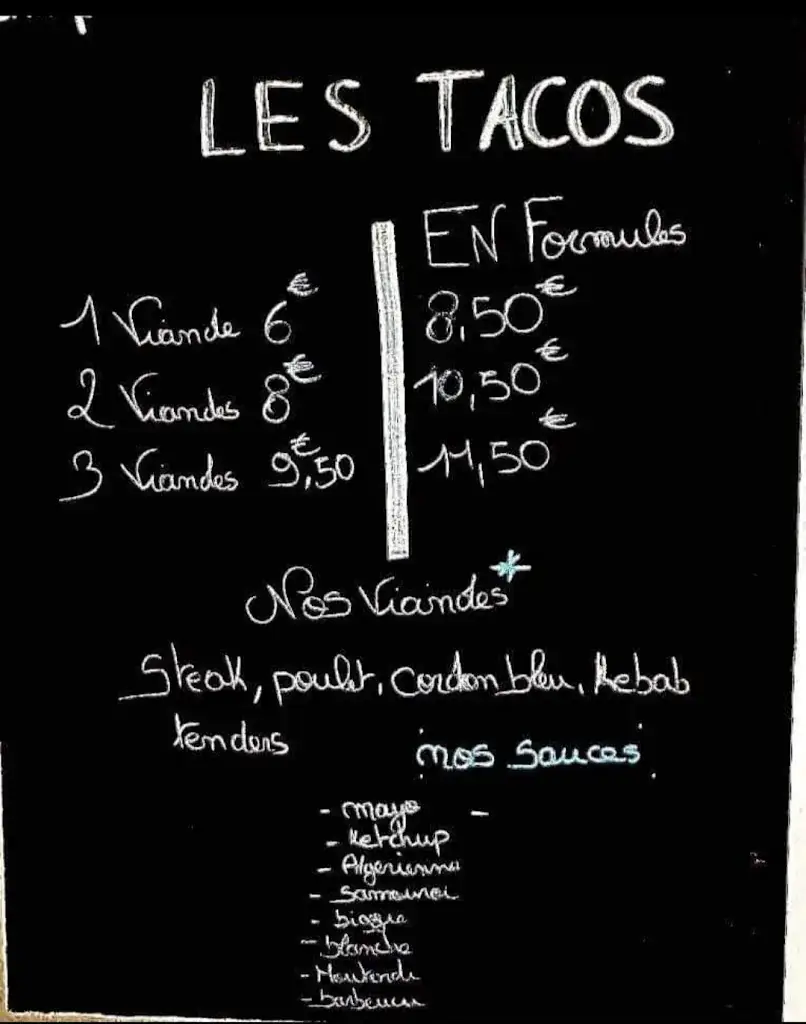 LES TACOS
EN Formules
1 Viande 6€ 8,50€
2 Viandes 8€ 10,50€
3 Viandes 9€,50 11,50€
Nos Viandes*
Steak, poulet, cordon bleu, Kebab
tenders
nos sauces
- mayo -
- Ketchup
- Algerienne
- samourai
- biggue
- blanche
- Moutarde
- barbecue